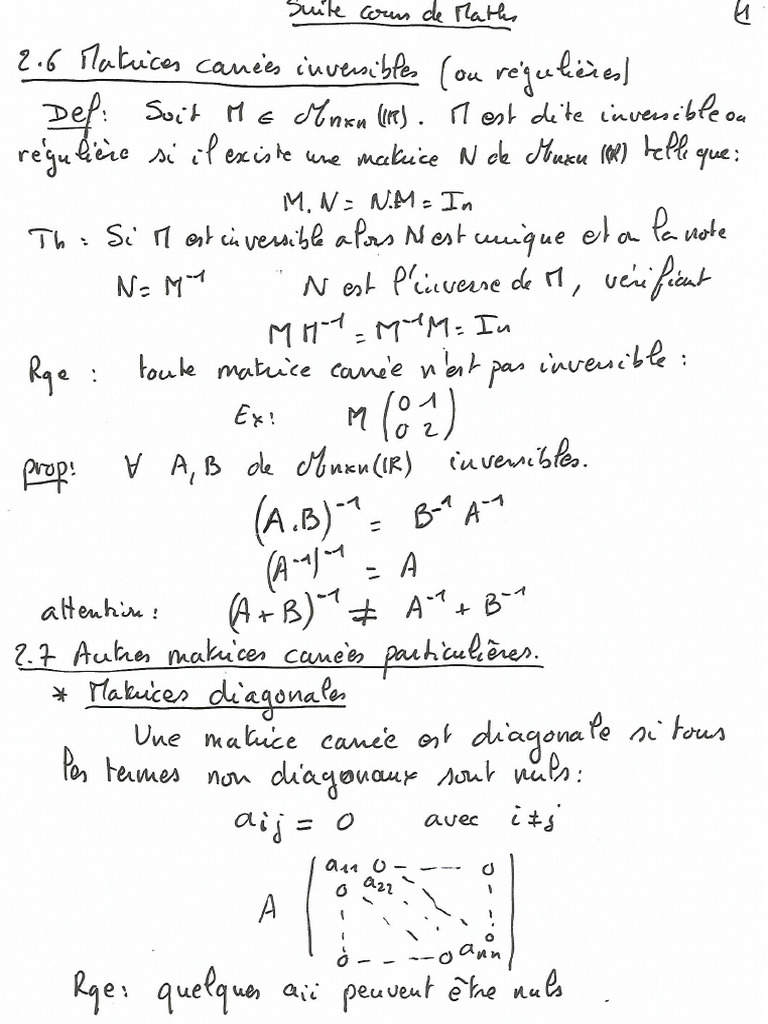 Suite cours de Maths 1
2.6 Matrices carrées inversibles (ou régulières)
Def: Soit M ∈ Mnxn (IR). M est dite inversible ou
régulière si il existe une matrice N de Mnxn (IR) telle que:
M.N = N.M = In
Th: Si M est inversible alors N est unique et on la note
N = M⁻¹ N est l'inverse de M, vérifiant
M M⁻¹ = M⁻¹M = In
Rqe : toute matrice carrée n'est pas inversible :
Ex: M (0 1
0 2)
prop: ∀ A, B de Mnxn(IR) inversibles.
(A.B)⁻¹ = B⁻¹ A⁻¹
(A⁻¹)⁻¹ = A
attention: (A+B)⁻¹ ≠ A⁻¹ + B⁻¹
2.7 Autres matrices carrées particulières.
* Matrices diagonales
Une matrice carrée est diagonale si tous
les termes non diagonaux sont nuls:
aij = 0 avec i≠j
a11 0 - - - - 0
0 a22
A
0
0 - - - - 0 ann
Rqe: quelques aii peuvent être nuls.